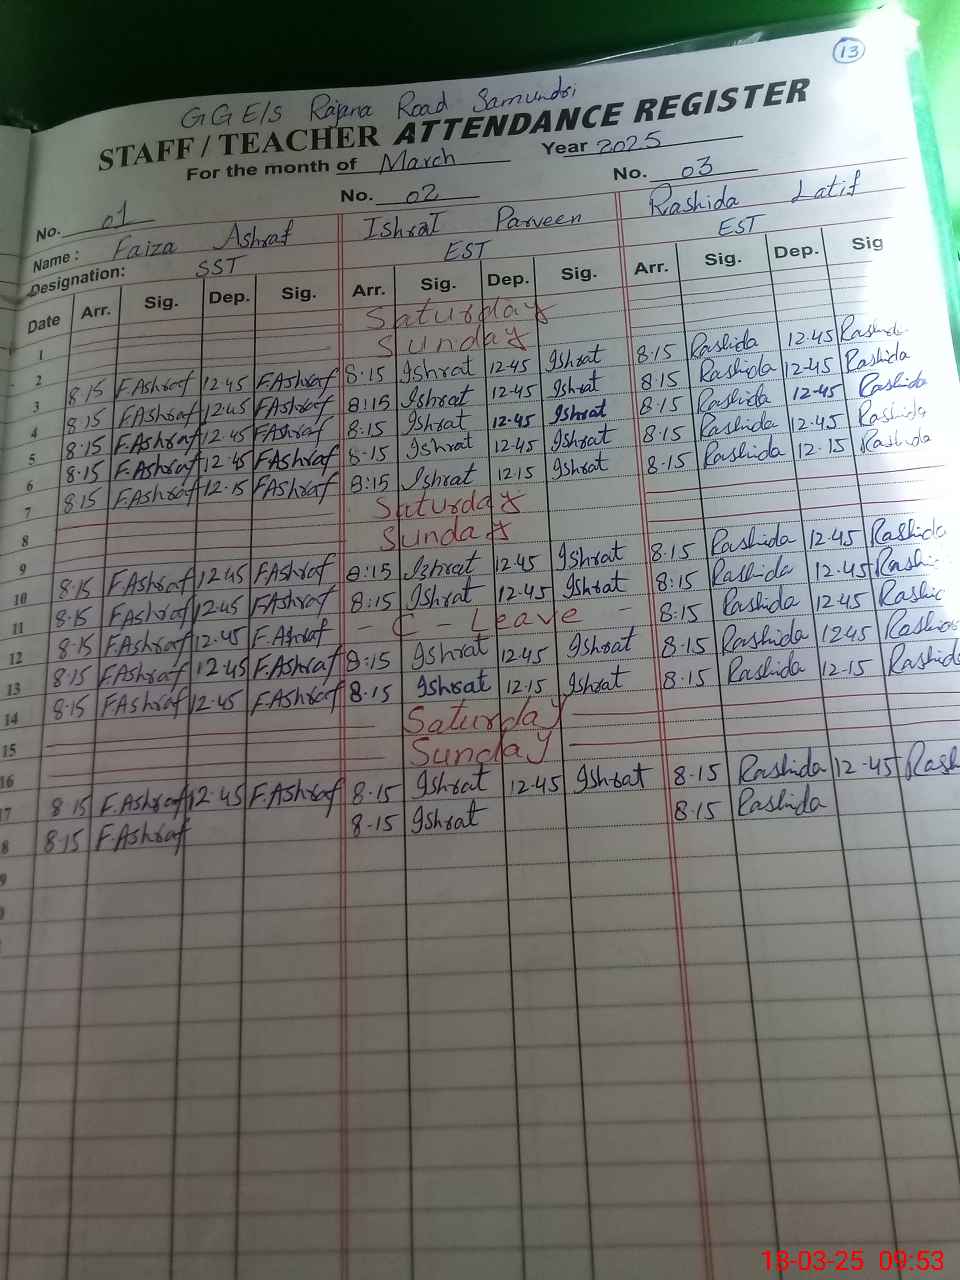 13
GGE/S Rajana Road Samundri
STAFF / TEACHER ATTENDANCE REGISTER
For the month of March Year 2025
No. 01 No. 02 No. 03
Name: Faiza Ashraf Ishrat Parveen Rashida Latif
Designation: SST EST EST
Date Arr. Sig. Dep. Sig. Arr. Sig. Dep. Sig. Arr. Sig. Dep. Sig
1 Saturday
2 Sunday
3 8.15 F.Ashraf 12.45 F.Ashraf 8.15 Ishrat 12.45 Ishrat 8.15 Rashida 12.45 Rashid
4 8.15 F.Ashraf 12.45 F.Ashraf 8:15 Ishrat 12.45 Ishrat 8.15 Rashida 12.45 Rashida
5 8.15 F.Ashraf 12.45 F.Ashraf 8.15 Ishrat 12.45 Ishrat 8.15 Rashida 12.45 Rashida
6 8.15 F.Ashraf 12.45 F.Ashraf 8.15 Ishrat 12.45 Ishrat 8.15 Rashida 12.45 Rashida
7 8.15 F.Ashraf 12.15 F.Ashraf 8:15 Ishrat 12.15 Ishrat 8.15 Rashida 12.15 Rashida
8 Saturday
9 Sunday
10 8.15 F.Ashraf 12.45 F.Ashraf 8:15 Ishrat 12.45 Ishrat 8.15 Rashida 12.45 Rashida
11 8.15 F.Ashraf 12.45 F.Ashraf 8:15 Ishrat 12.45 Ishrat 8:15 Rashida 12.45 Rashi
12 8.15 F.Ashraf 12.45 F.Ashraf - C - Leave - 8:15 Rashida 12.45 Rashid
13 8.15 F.Ashraf 12.45 F.Ashraf 8:15 Ishrat 12.45 Ishrat 8.15 Rashida 12.45 Rashida
14 8.15 F.Ashraf 12.45 F.Ashraf 8.15 Ishrat 12.15 Ishrat 8.15 Rashida 12.15 Rashida
15 Saturday
16 Sunday
17 8.15 F.Ashraf 12.45 F.Ashraf 8.15 Ishrat 12.45 Ishrat 8.15 Rashida 12.45 Rash
8 8.15 F.Ashraf 8.15 Ishrat 8.15 Rashida
9
18-03-25 09:53